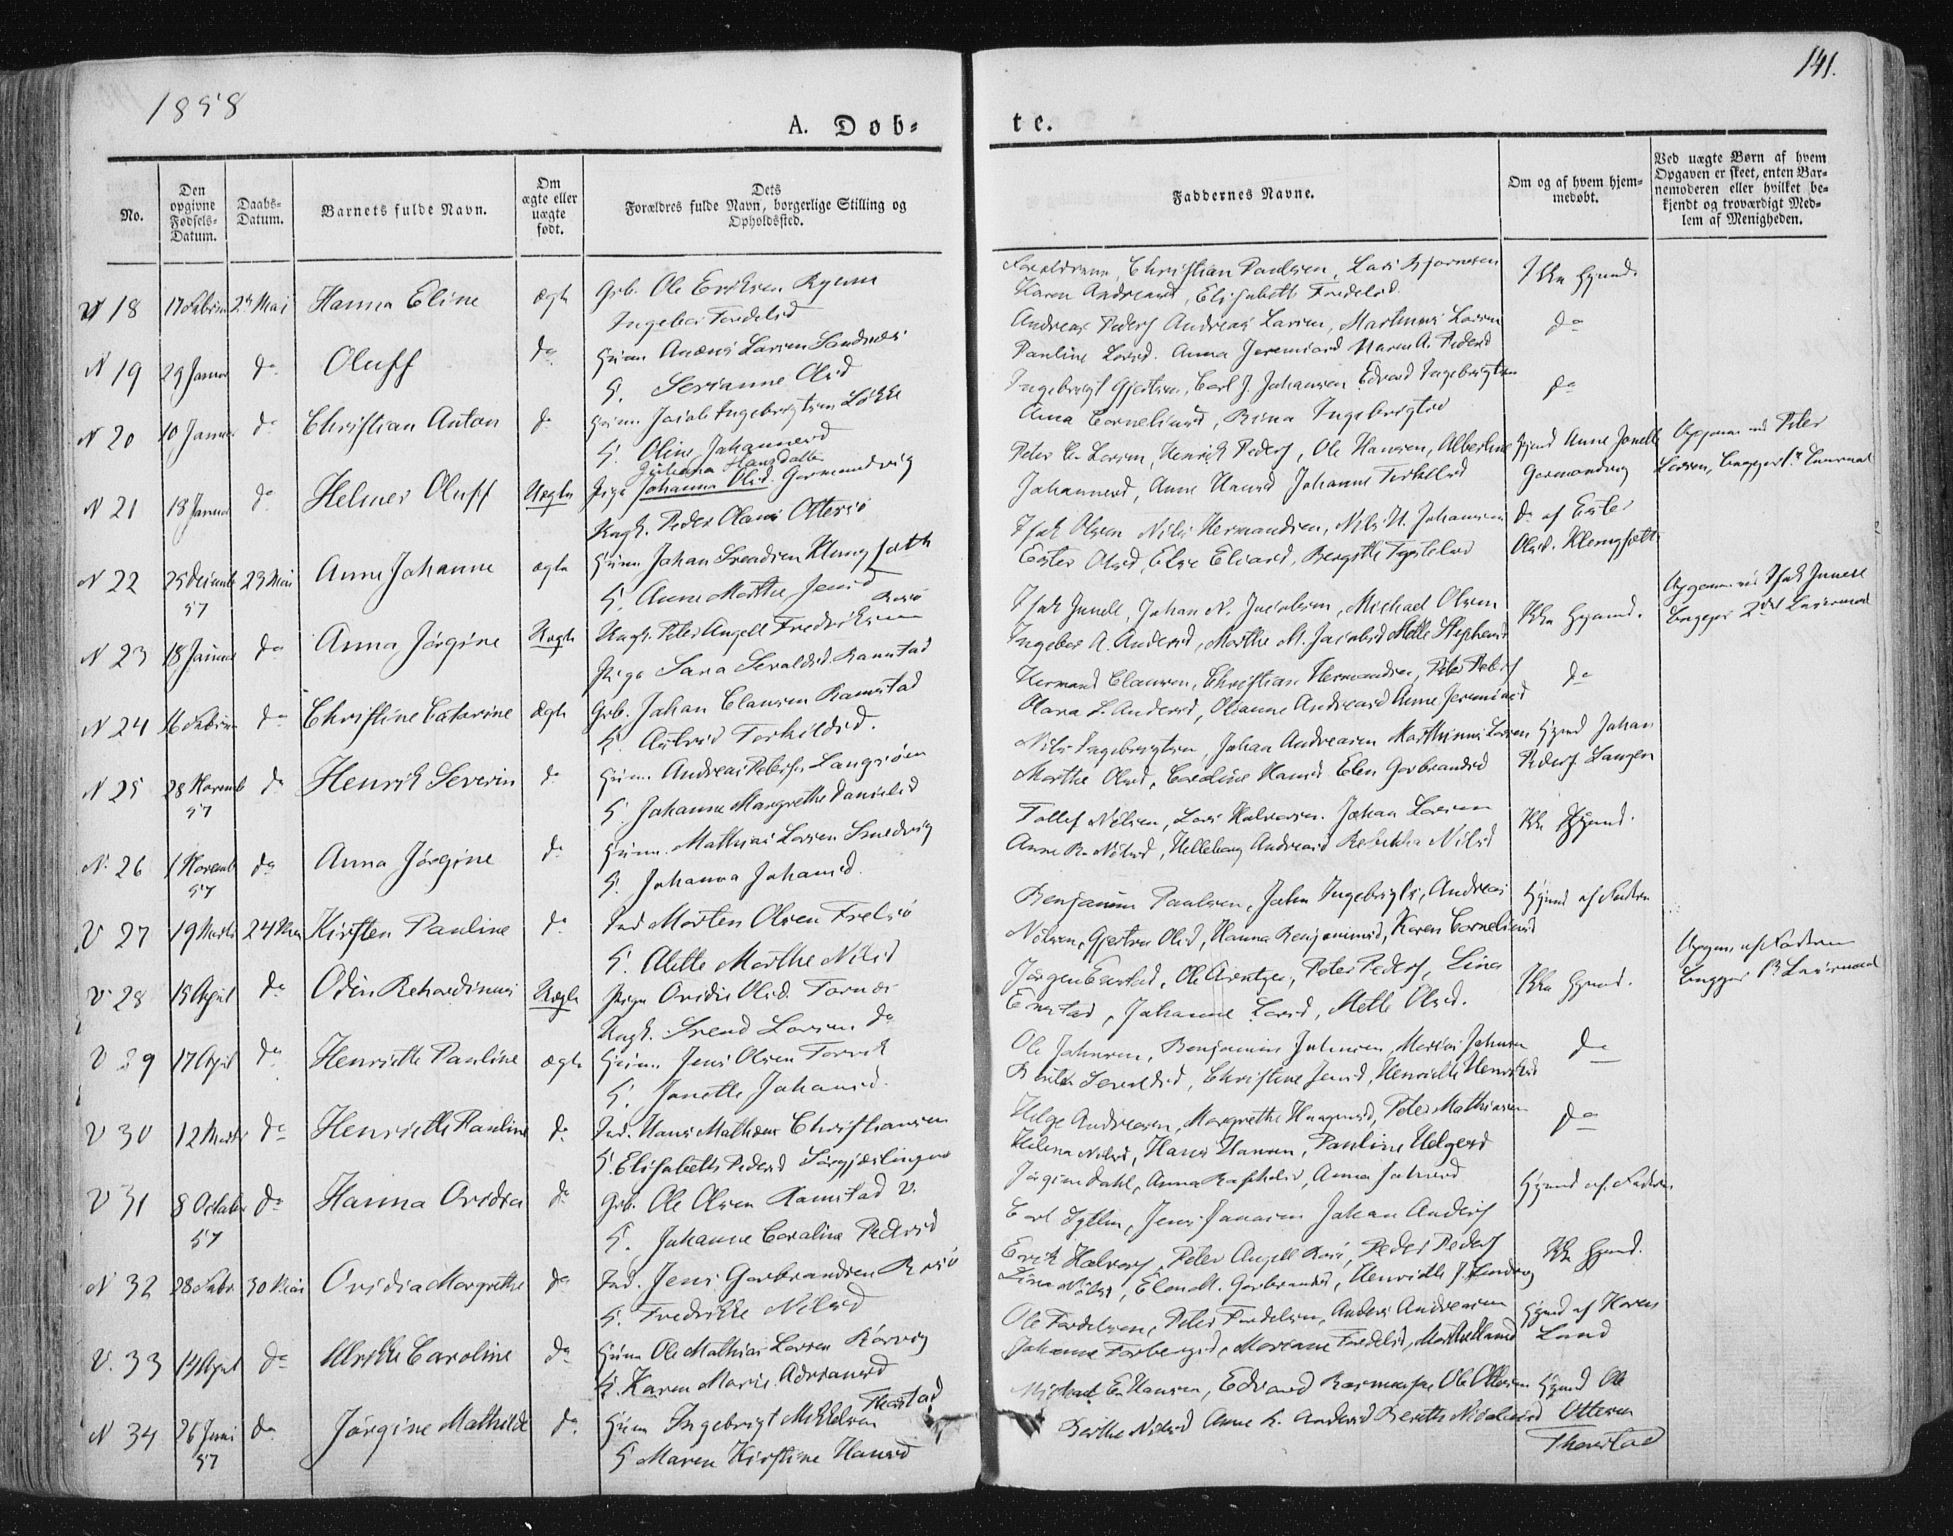 1858
141.
A. Døb-
te.
No.
Den opgivne Fødsels-Datum.
Daabs-Datum.
Barnets fulde Navn.
Om ægte eller uægte født.
Dets Forældres fulde Navn, borgerlige Stilling og Opholdssted.
Faddernes Navne.
Om og af hvem hjem-meddøbt.
Ved uægte Børn af hvem Opgaven er skeet, enten Bar-nemoderen eller hvilket be-kjendt og troværdigt Med-lem af Menigheden.
18 17 Februar 24 Mai Hanna Eline ægte Grb. Ole Eriksen
Ingebor Tordelsd
Christian Paulsen, Lars Bjørnesen
Karen Andreasd, Elisabeth Tordelsd
N 19 29 Januar do Oluff do Andreas Larsen Sandnæs
H. Serianne Olsd
Andreas Peders Andreas Larsen, Marthinus Larsen do
Pauline Larsd. Anna Jeremiasd Maren A. Pedersd
N 20 10 Januar do Christian Anton do Jacob Ingebrigtsen Løkke
H. Oline Johannesd
Ingebrigt Gjertsen, Carl J. Johansen Edvard Ingebrigtsen do
Anna Corneliusd, Rina Ingebrigtsd
N 21 18 Januar do Helmer Oluff Uægte Pige Johanna Olsd. Gormandvig
Juliana Hansdatter
Ungk. Peder Olaus Otterø
Peter Larsen, Henrik Peders, Ole Hansen, Albertine
Johannesd, Anne Hansd Johanne Torkelsd
Hjemd Anne Jonette Gormandvig
Peter Larsen, Lægger 1ste Leiermaal
N 22 25 Decemb 57 23 Mai Anne Johanne ægte Johan Svendsen Klingsæth
H. Anne Marthe Jensd
Isak Olsen Nils Hermandsen, Nils H. Johansen
Ester Olsd, Else Eliasd, Bergithe
do af Ester Olsd. Klingsæth
N 23 18 Januar do Anna Jørgine Uægte Ungk. Peter Angell Fredriksen Rosø
Pige Sara Seraldsd. Ramstad
Isak Junell, Johan N. Jacobsen, Michael Olsen
Ingebor A. Andersd, Marthe M. Jacobsd Mette Stephensd
Ikke Hjemd.
Isak Junell Lægger 2det Leiermaal
N 24 16 Februar do Christine Catarine Ægte Grb. Johan Clausen Ramstad
H. Astrid Torkildsd.
Hermand Clausen, Christian Hermandsen, Peter Peders do
Olava L. Andersd, Oleanne Andreasd Anne Jeremiasd
N 25 28 Novemb 57 do Henrik Severin do Andreas Peders. Langsøen
H. Johanne Margrethe Danielsd
Nils Ingebrigtsen, Johan Andreasen Marthinus Larsen
Marthe Olsd, Caroline Hansd Elen Garbrandsd
Hjemd Johan Peders Langen
N. 26 1 Novemb 57 do Anna Jørgine do Mathias Larsen Smedvig
H. Johanna Johansd.
Tollef Nilsen, Lars Halvorsen. Johan Larsen
Anne B. Nilsd, Helleborg Andreasd Rebekka Nilsd
Ikke Hjemd.
V 27 19 Marts 24 Mai Kirsten Pauline do Ind. Morten Olsen Frelsø
H. Alette Marthe Nilsd
Benjamin Paulsen, John Ingebrigts, Andreas
Nilsen, Gjertru Olsd, Hanna Benjaminsd, Karen Corneliusd
Hjemd af Faderen
V 28 15 April do Odin Rehardinus Uægte Pige Ovidia Olsd. Tornes
Ungk. Svend Larsen do
Jørgen Enestad, Ole Arntzen, Peter Peders, Lina
Enestad, Johanne Larsd, Mette Olsd.
Ikke Hjemd.
Opgivn af Faderen Lægger 1ste Leiermaal
V 29 17 April do Henriette Pauline ægte Jens Olsen Torvik
H. Jonette Johansd.
Ole Johnsen, Benjamin Johnsen, Marthin Johnsen do
Christine Jensd, Henriette Henriksd
V 30 12 Marts do Henriette Pauline do Ind. Hans Mathias Christiansen
H. Elisabeth Pedersd Sørgjæslingen
Helge Andreasen, Margrethe Haagensd, Peter Mathiasen do
Helena Nilsd, Hans Hansen, Pauline Helgesd
V 31 8 October 57 do Hanna Ovidia do Grb. Ole Olsen Ramstad V.
H. Johanne Caroline Pedersd
Jørgine Dahl, Anna Raphelsd, Anna Johnsd
Carl Sytlin, Jens Jonasen Johan Anders
Hjemd af Faderen
N 32 28 Febr 30 Mai Ovidia Margrethe do Ind. Jens Garbrandsen Rosø
H. Fredrikke Nilsd
Erik Halvors, Peter Angell Rosø, Peder Peders
Lina Nilsd, Elen M. Garbrandsd, Henriette J.
Ikke Hjemd.
V. 33 14 April do Ulrikke Caroline do Ole Mathias Larsen Kørvig
H. Karen Marie Adriansd
Ole Tordelsen, Peter Tordelsen, Anders Andreasen
Johanna Torbergsd, Mariane Tordelsd, Marthe Hansd
Hjemd af Karen Land
N 34 26 Juni 57 do Jørgine Mathilde do Ingebrigt Mikkelsen Thorstad
H Maren Kirstine Hansd
Michael E. Hansen, Edvard Rasmussen Ole Ottesen
Berthe Nilsd Anne L. Andersd Bereth Nicolaisd
Hjemd Ole Ottesen Thorstad